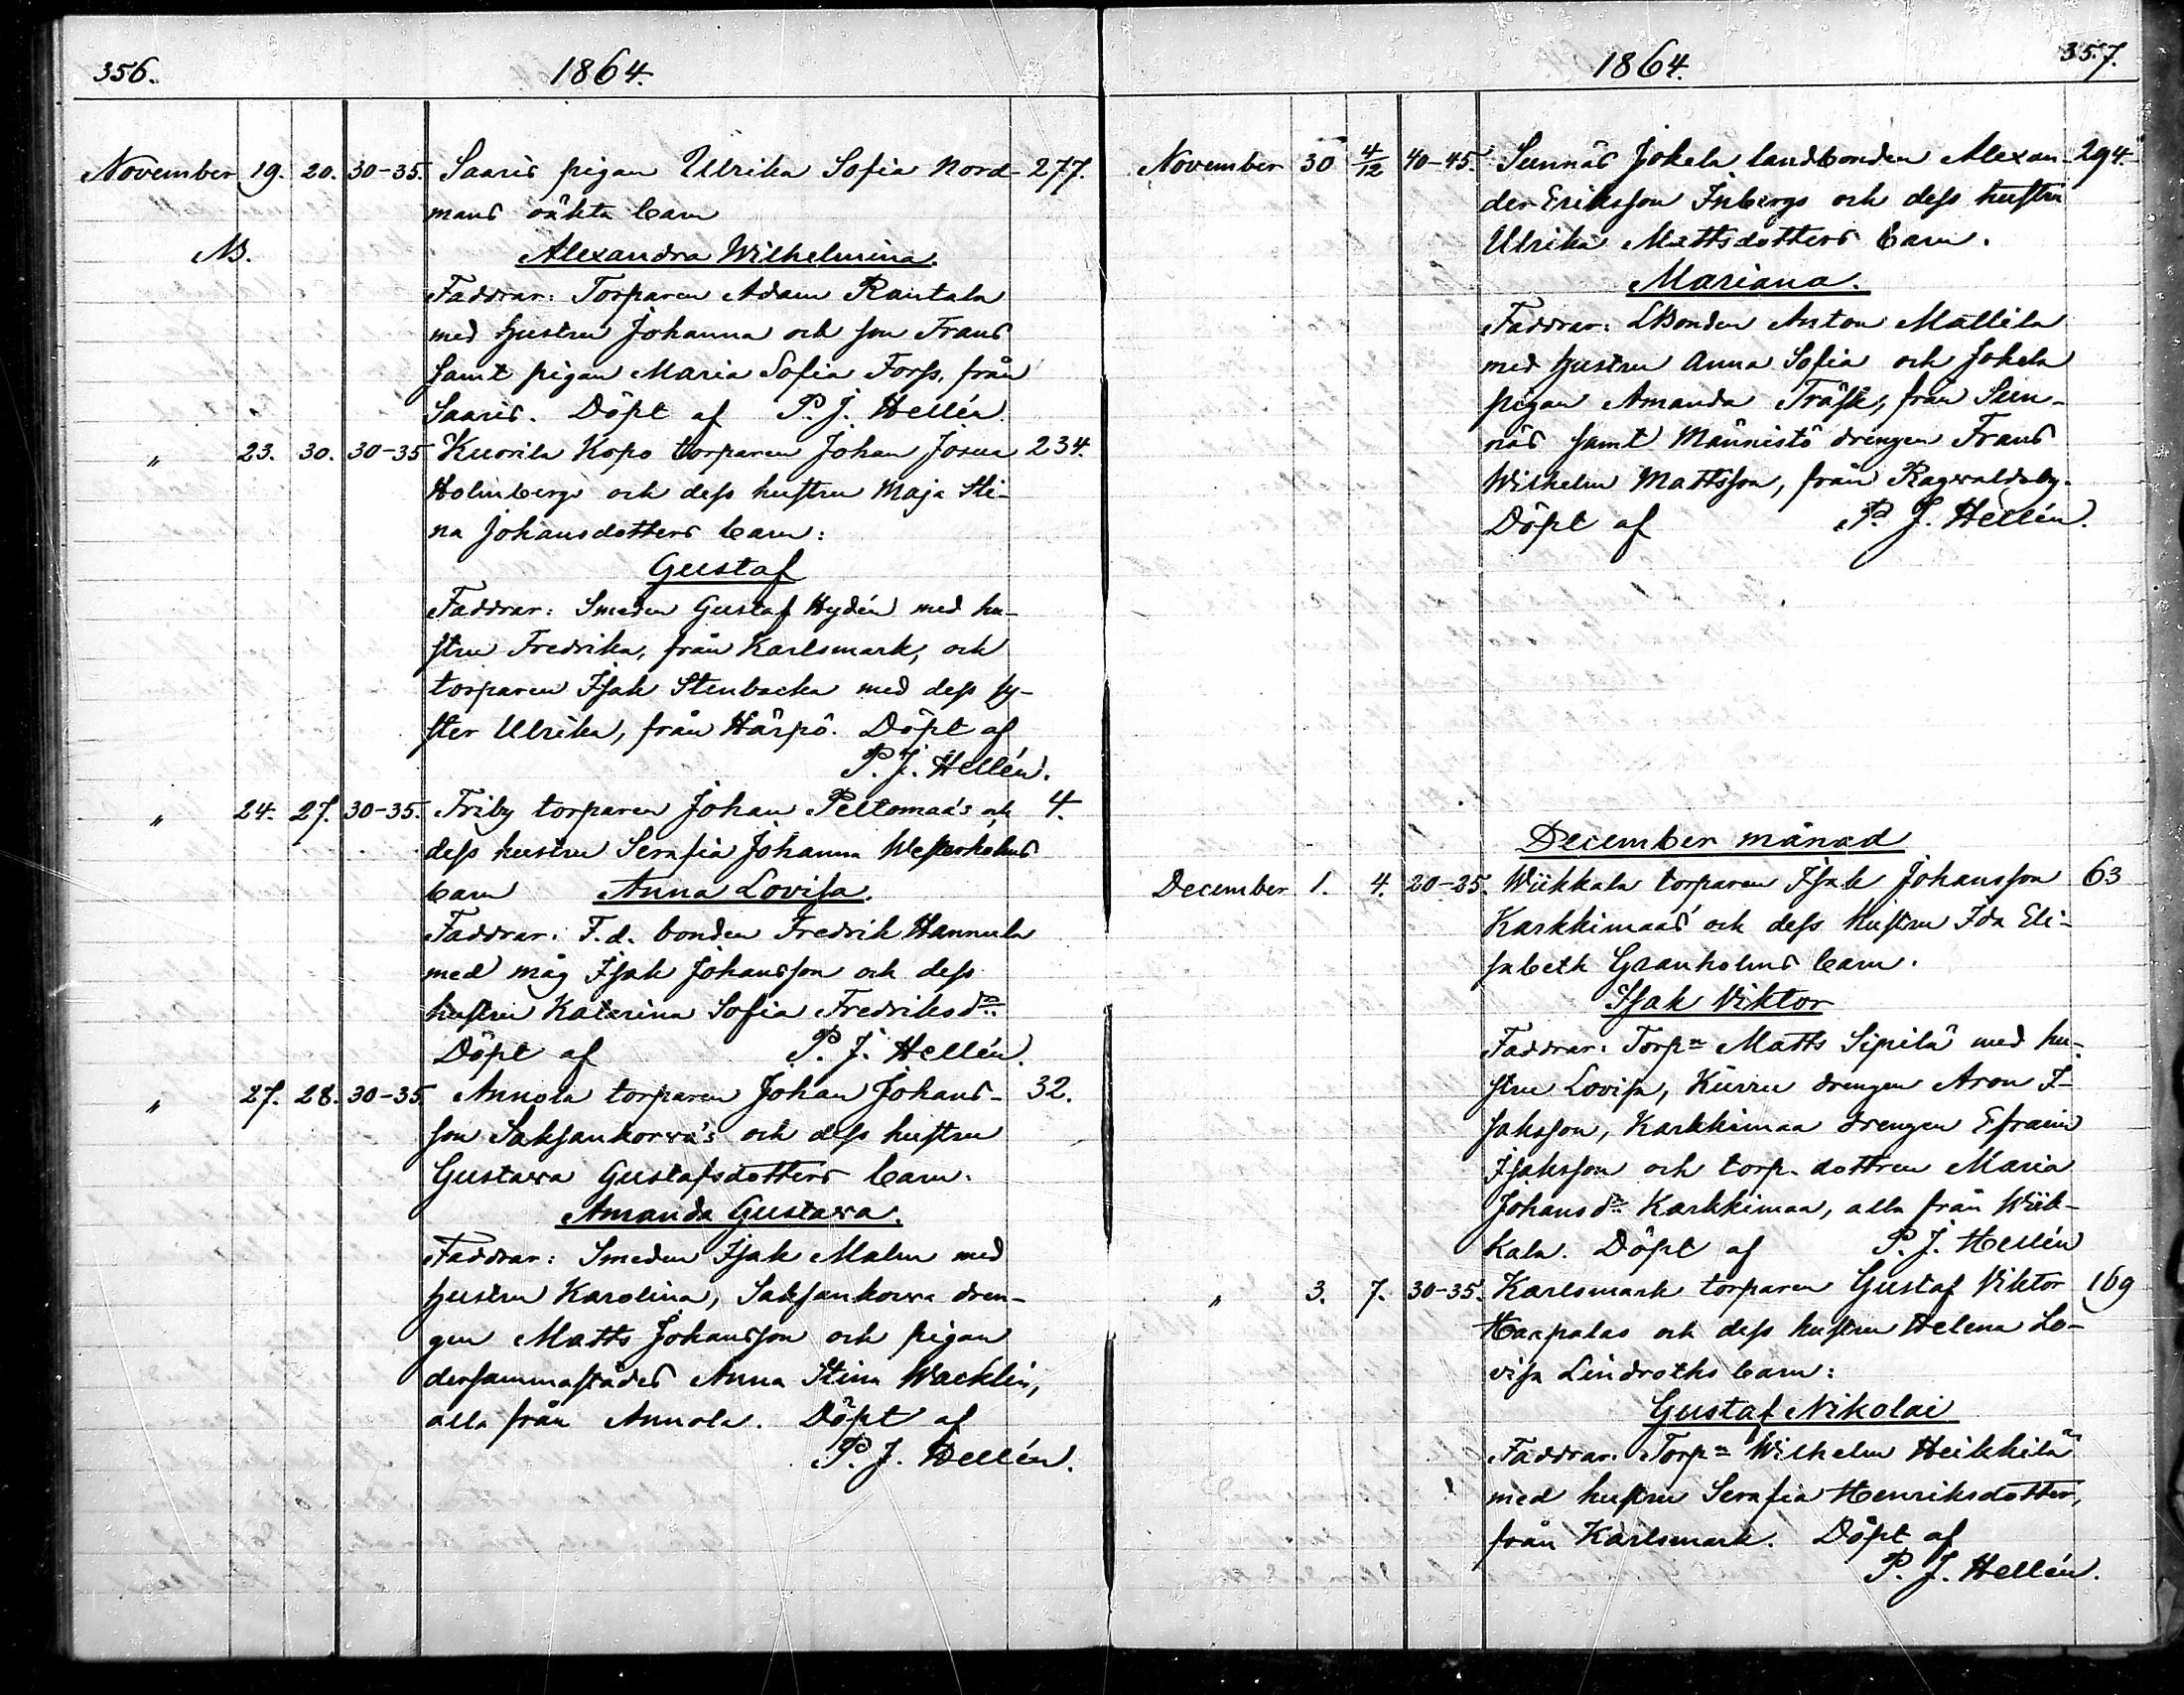 356.
1864.
November 19. 20. 30-35. Saaris pigan Ulrika Sofia Nord- 277.
mans oäkta barn
NB.
Alexandra Wilhelmina.
Faddrar: Torparen Adam Rantala
med hustru Johanna och son Frans
samt pigan Maria Sofia Forss, från
Saaris. Döpt af P. J. Hellén.
" 23. 30. 30-35 Kuorila Kopo torparen Johan Josua 234.
Holmbergs och dess hustru Maja Sti-
na Johansdotters barn:
Gustaf
Faddrar: Smeden Gustaf Hydén med hu-
stru Fredrika, från Karlsmark, och
torparen Isak Stenbacka med dess sy-
ster Ulrika, från Härpö. Döpt af
P. J. Hellén.
" 24. 27. 30-35. Friby torparen Johan Peltomaa's och 4.
dess hustru Serafia Johanna Westerholms
barn Anna Lovisa.
Faddrar: F.d. bonden Fredrik Hannula
med måg Isak Johansson och dess
hustru Katarina Sofia Fredriksdr.
Döpt af P. J. Hellén.
" 27. 28. 30-35 Annola torparen Johan Johans- 32.
son Saksankorva's och dess hustru
Gustava Gustafsdotters barn.
Amanda Gustava.
Faddrar: Smeden Isak Malm med
hustru Karolina, Saksankorva dren-
gen Matts Johansson och pigan
dersammastädes Anna Stina Wacklin,
alla från Annola. Döpt af
P. J. Hellén.
1864.
357.
November 30 4/12 40-45. Sunnäs Jokela landbonden Alexan- 294.
der Eriksson Inbergs och dess hustru
Ulrika Mattsdotters barn.
Mariana.
Faddrar: LBonden Anton Mattila
med hustru Anna Sofia och Jokela
pigan Amanda Träsk, från Sun-
näs samt Männistö drengen Frans
Wilhelm Mattsson, från Ragvaldsby.
Döpt af P. J. Hellén.
December månad
December 1. 4. 20-25. Wiikkala torparen Isak Johansson 63
Karkkimaas och dess hustru Ida Eli-
sabeth Granholms barn.
Isak Viktor
Faddrar: Torpn Matts Sipilä med hu-
stru Lovisa, Kurru drengen Aron I-
saksson, Karkkimaa drengen Efraim
Isaksson och torp. dottren Maria
Johansdr Karkkimaa, alla från Wiik-
kala. Döpt af P. J. Hellén
" 3. 7. 30-35. Karlsmark torparen Gustaf Viktor 169
Haapalas och dess hustru Helena Lo-
visa Lindroths barn:
Gustaf Nikolai
Faddrar: Torpn Wilhelm Heikkilä
med hustru Serafia Henriksdotter,
från Karlsmark. Döpt af
P. J. Hellén.